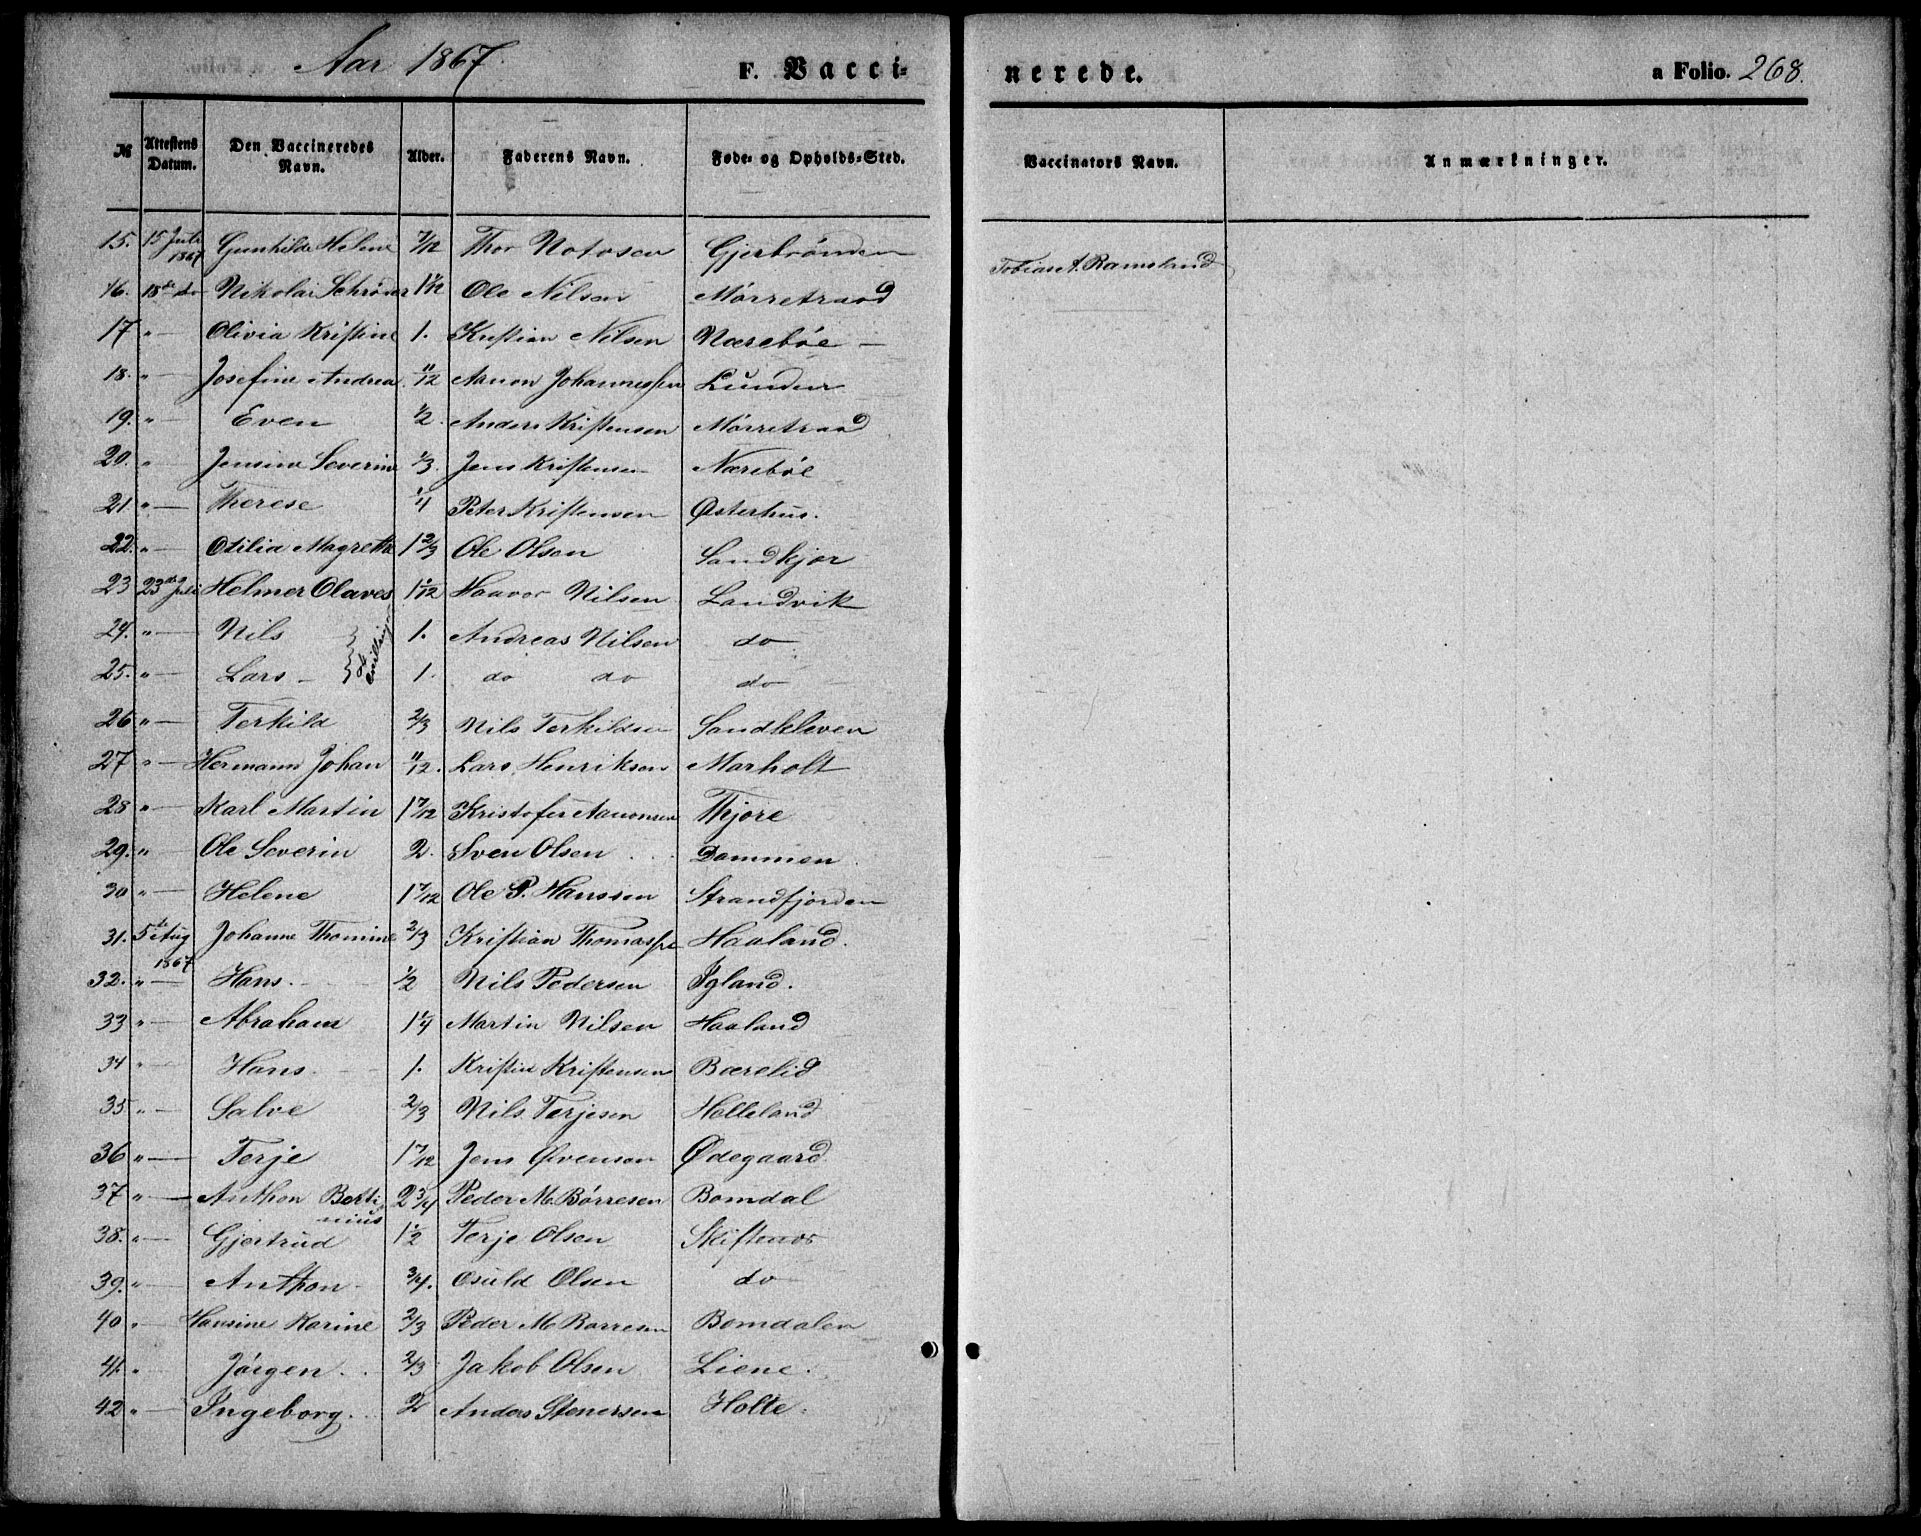 Aar 1867.
F. Vacci-
nerede.
a Folio. 268.
№ Attestens Datum. Den Vaccineredes Navn. Alder. Faderens Navn. Føde- og Opholds-Sted. Vaccinators Navn. Anmærkninger.
15. 15 Juli 1867 Gunhilde Helene 7/12 Thor Notosen Gjerbrønden Tobias A. Ramsland
16. 18de do Nikolai Schrøder 1 1/12 Ole Nilsen Mørretraad
17 " — Olivia Kristine 1. Kristian Nilsen Nærebøe —
18. " — Josefine Andrea 11/12 Aanon Johannessen Lunden
19. " — Even 1/2. Anders Kristensen Mørretraad
20. " — Jensine Severine 1/3. Jens Kristensen Nærebøe
21 " — Therese 1/4 Peter Kristensen Østerhus.
22. " — Otilia Magrethe 1 2/3 Ole Olsen Sandkjær
23 23de Juli Helmer Olaves 1 1/12 Haavor Nilsen Landvik
24. " — Nils 1. Andreas Nilsen do
25. " — Lars — 1. do do do
26 " — Terkild 2/3 Nils Terkildsen Sandkleven
27 " — Hermann Johan 11/12. Lars Henriksen Marholt
28 " — Karl Martin 1 7/12 Kristofer Aanonsen Thjore
29. " — Ole Severin 2. Sven Olsen Dammen
30 " — Helene 1 7/12 Ole P. Hanssen Strandfjorden
31. 5te Aug 1867 Johanne Thomine 2/3 Kristian Thomassen Haaland.
32. " — Hans. 1/2 Nils Pedersen Igland.
33 " — Abraham 1 1/4 Martin Nilsen Haaland
34 " — Hans. 1. Kristen Kristensen Bærelid
35 " — Salve 2/3 Nils Terjesen Holleland
36 " — Terje 1 7/12 Jens Øvensen Ødegaard
37 " — Anthon Berti- 2 3/4 Peder M. Børresen Bomdal
nius
38. " — Gjertrud 1 1/2 Terje Olsen Skiftenes
39. " — Anthon 3/4. Osuld Olsen do
40 " — Hansine Karine 2/3 Peder M. Børresen Bomdalen
41. " — Jørgen. 2/3 Jakob Olsen Liene.
42 " — Ingeborg. 2 Anders Stenersen Holte.